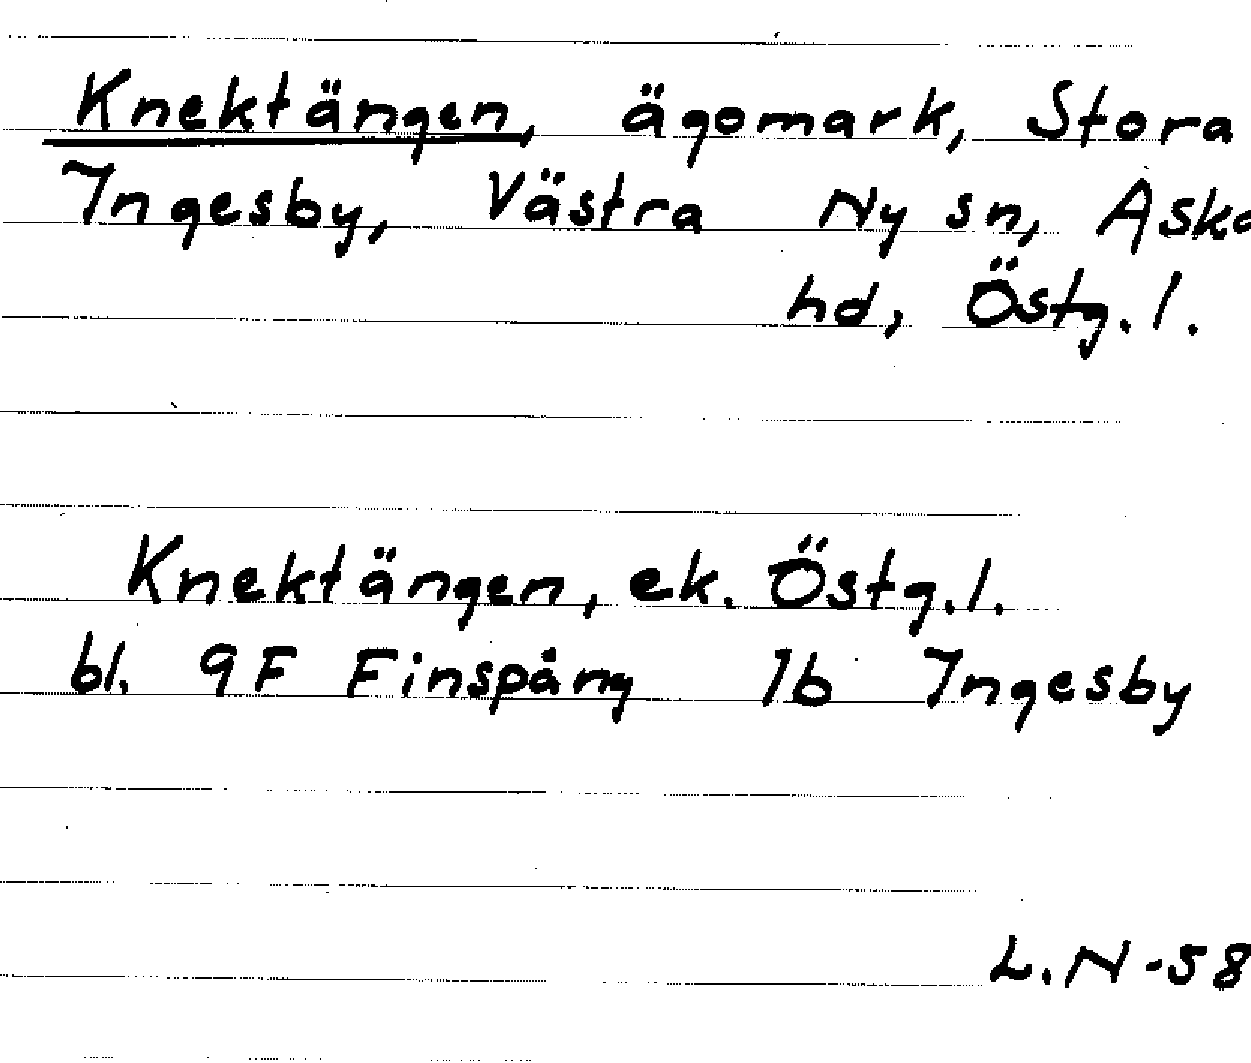 Knektängen, ägomark, Stora
Ingesby, Västra Ny sn, Aska
hd, Östg.l.
Knektängen, ek. Östg.l.
bl. 9F Finspång 1b Ingesby
L.N-58